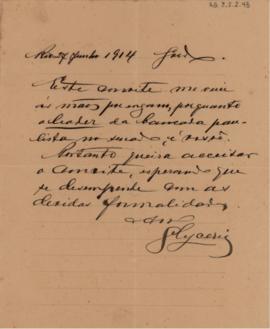 Rio 7 Junho 1914
Este convite me veiu
ás mãos por engano, porquanto
o leader da bancada pau-
lista no senado, é
Portanto queira acceitar
o convite, esperando que
se desempenhe com as
devidas formalidades
Glycerio